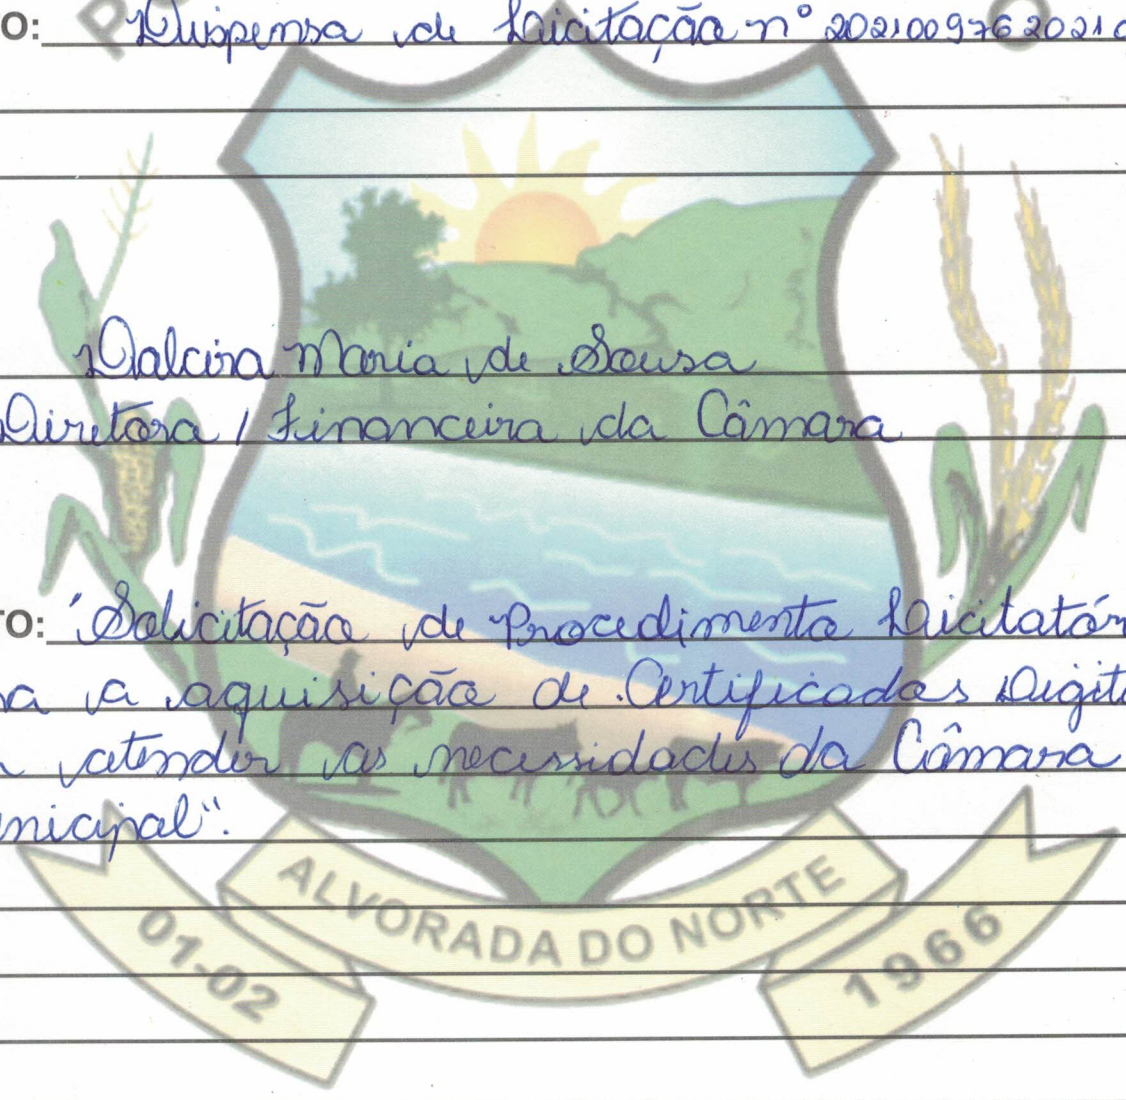 O: Dispensa de Licitação nº 202100976 2021
Dalcira Maria de Sousa
Diretora / Financeira da Câmara
TO: "Solicitação de Procedimento Licitatór
ra a aquisição de Certificados Digita
a atender as necessidades da Câmara
nicipal".
ALVORADA DO NORTE
01-02
1966